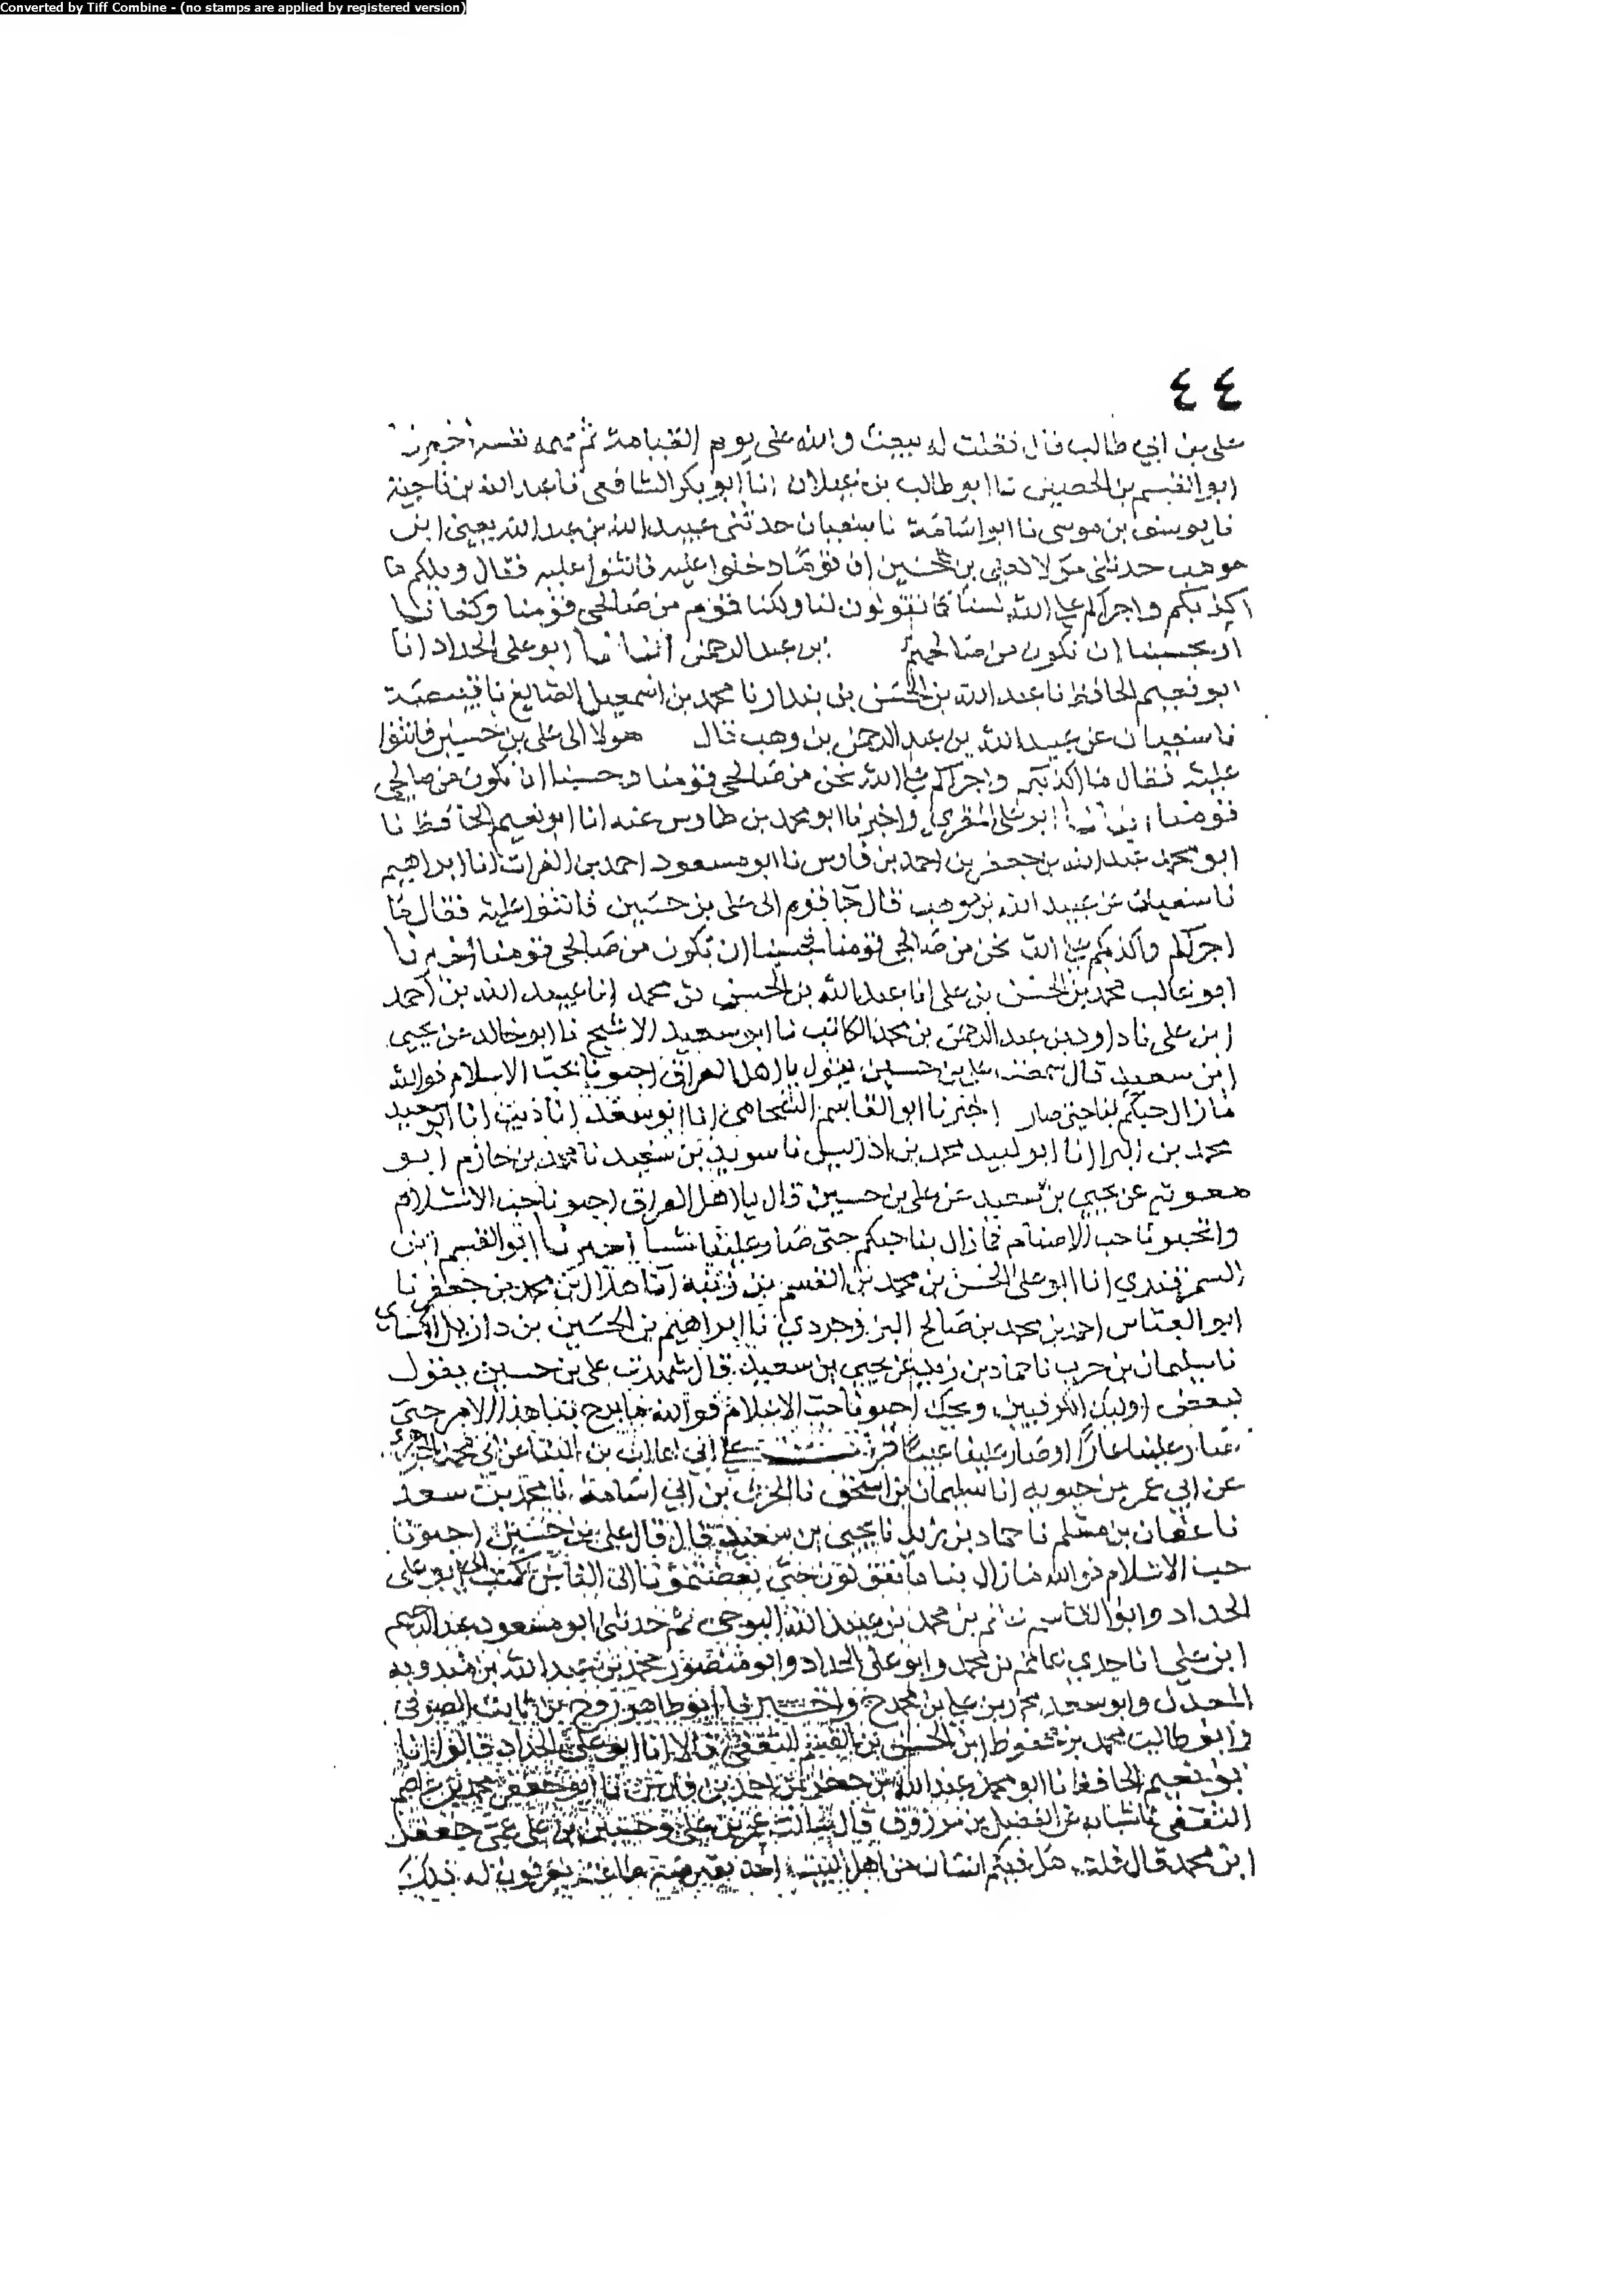 Converted by Tiff Combine - (no stamps are applied by registered version)
٤٤
على بن ابي طالب قال فقلت له يبعث والله على يوم القيامة ثم تهمه نفسه اخبرنا
ابو القسم بن الحصين نا ابو طالب بن غيلان انا ابو بكر الشافعى نا عبد الله بن ناجية
نا يوسف بن موسى نا ابو اسامة نا سفيان حدثنى عبيد الله بن عبد الله يعني ابن
موهب حدثنى مولا لعلى بن حسين ان قوما دخلوا عليه فاثنوا عليه فقال ويلكم ما
اكذبكم واجراكم على الله لسنا كما تقولون لنا ولكنا قوم من صالحى قومنا وكفانا
او بحسبنا ان نكون من صالحيهم بن عبد الرحمن انبانا ابو على الحداد انا
ابو نعيم الحافظ نا عبد الله بن الحسن بن بندار نا محمد بن اسمعيل الصايغ نا قبيصة
نا سفيان عن عبيد الله بن عبد الرحمن بن وهب قال هولا الى على بن حسين فاثنوا
عليه فقال ما اكذبكم واجراكم على الله نحن من صالحى قومنا وحسبنا ان نكون من صالحى
قومنا انبانا ابو على المقرى واخبرنا ابو محمد بن طاوس عنه انا ابو نعيم الحافظ نا
ابو محمد عبد الله بن جعفر بن احمد بن فارس نا ابو مسعود احمد بن الفرات انا ابراهيم
نا سفيان عن عبيد الله بن موهب قال جا قوم الى على بن حسين فاثنوا عليه فقال ما
اجراكم واكذبكم على الله نحن من صالحى قومنا فحسبنا ان نكون من صالحى قومنا اخبرنا
ابو غالب محمد بن الحسن بن على انا عبد الله بن الحسن بن محمد انا عبيد الله بن احمد
ابن على نا داود بن عبد الرحمن بن محمد الكاتب نا ابو سعيد الاشج نا ابو خالد عن يحيى
ابن سعيد قال سمعت على بن حسين يقول يا اهل العراق احبونا بحب الاسلام فوالله
ما زال حبكم بنا حتى صار اخبرنا ابو القاسم الشحامى انا ابو سعد انا ابو سعيد
محمد بن انا ابو لبيد محمد بن ادريس نا سويد بن سعيد نا محمد بن خازم ابو
معوية عن يحيى بن سعيد عن على بن حسين قال يا اهل العراق احبونا حب الاسلام
ولا تحبونا حب الاصنام فما زال بنا حبكم حتى صار علينا شينا اخبرنا ابو القسم ابن
السمرقندي انا ابو على الحسن بن محمد بن القسم بن زينة انا هلال بن محمد بن جعفر نا
ابو العباس احمد بن محمد بن صالح البروجردي نا ابراهيم بن الحسين بن دازيل
نا سليمان بن حرب نا حماد بن زيد عن يحيى بن سعيد قال شهدت على بن حسين يقول
لبعض اوليك الكوفيين ويحك احبونا حب الاسلام فوالله ما برح بنا هذا الامر حتى
صار علينا عارا او صار علينا عيبا قرات على ابي غالب بن البنا عن ابي محمد الجوهري
عن ابي عمر بن حيويه انا سليمان بن اسحق نا الحرث بن ابي اسامة نا محمد بن سعد
نا عفان بن مسلم نا حماد بن زيد نا يحيى بن سعيد قال قال على بن حسين احبونا
حب الاسلام فوالله ما زال بنا ما تقولون حتى بغضتمونا الى الناس كتب الى ابو على
الحداد وابو القاسم غانم بن محمد بن عبيد الله البرجى ثم حدثنى ابو مسعود عبد الرحيم
ابن على انا جدي غانم بن محمد وابو على الحداد وابو منصور محمد بن عبد الله بن مندويه
المعدل وابو سعد محمد بن على بن محمد ح واخبرنا ابو طاهر روح بن ثابت الصوفى
وابو طالب محمد بن محفوظ ابن الحسن بن القسم الثقفى قالا انا ابو على الحداد قالوا انا
ابو نعيم الحافظ انا ابو محمد عبد الله بن جعفر بن احمد بن فارس نا ابو جعفر محمد بن عاصم
الثقفى نا شبابة عن الفضيل بن مرزوق قال سالت عمر بن على وحسين بن على عمى جعفر
ابن محمد قال قلت هل فيكم انسان من اهل البيت احد تعرفون له ذلك